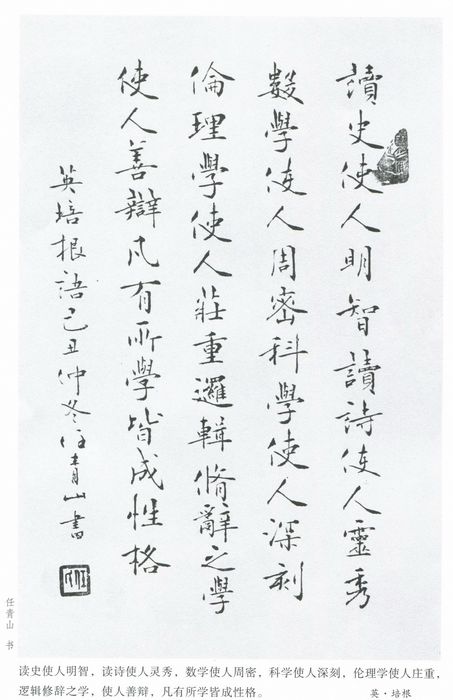 讀史使人明智讀詩使人靈秀
數學使人周密科學使人深刻
倫理學使人莊重邏輯脩辭之學
使人善辯凡有所學皆成性格
英培根語己丑仲冬任青山書
任青山 书
读史使人明智，读诗使人灵秀，数学使人周密，科学使人深刻，伦理学使人庄重，
逻辑修辞之学，使人善辩，凡有所学皆成性格。
英·培根